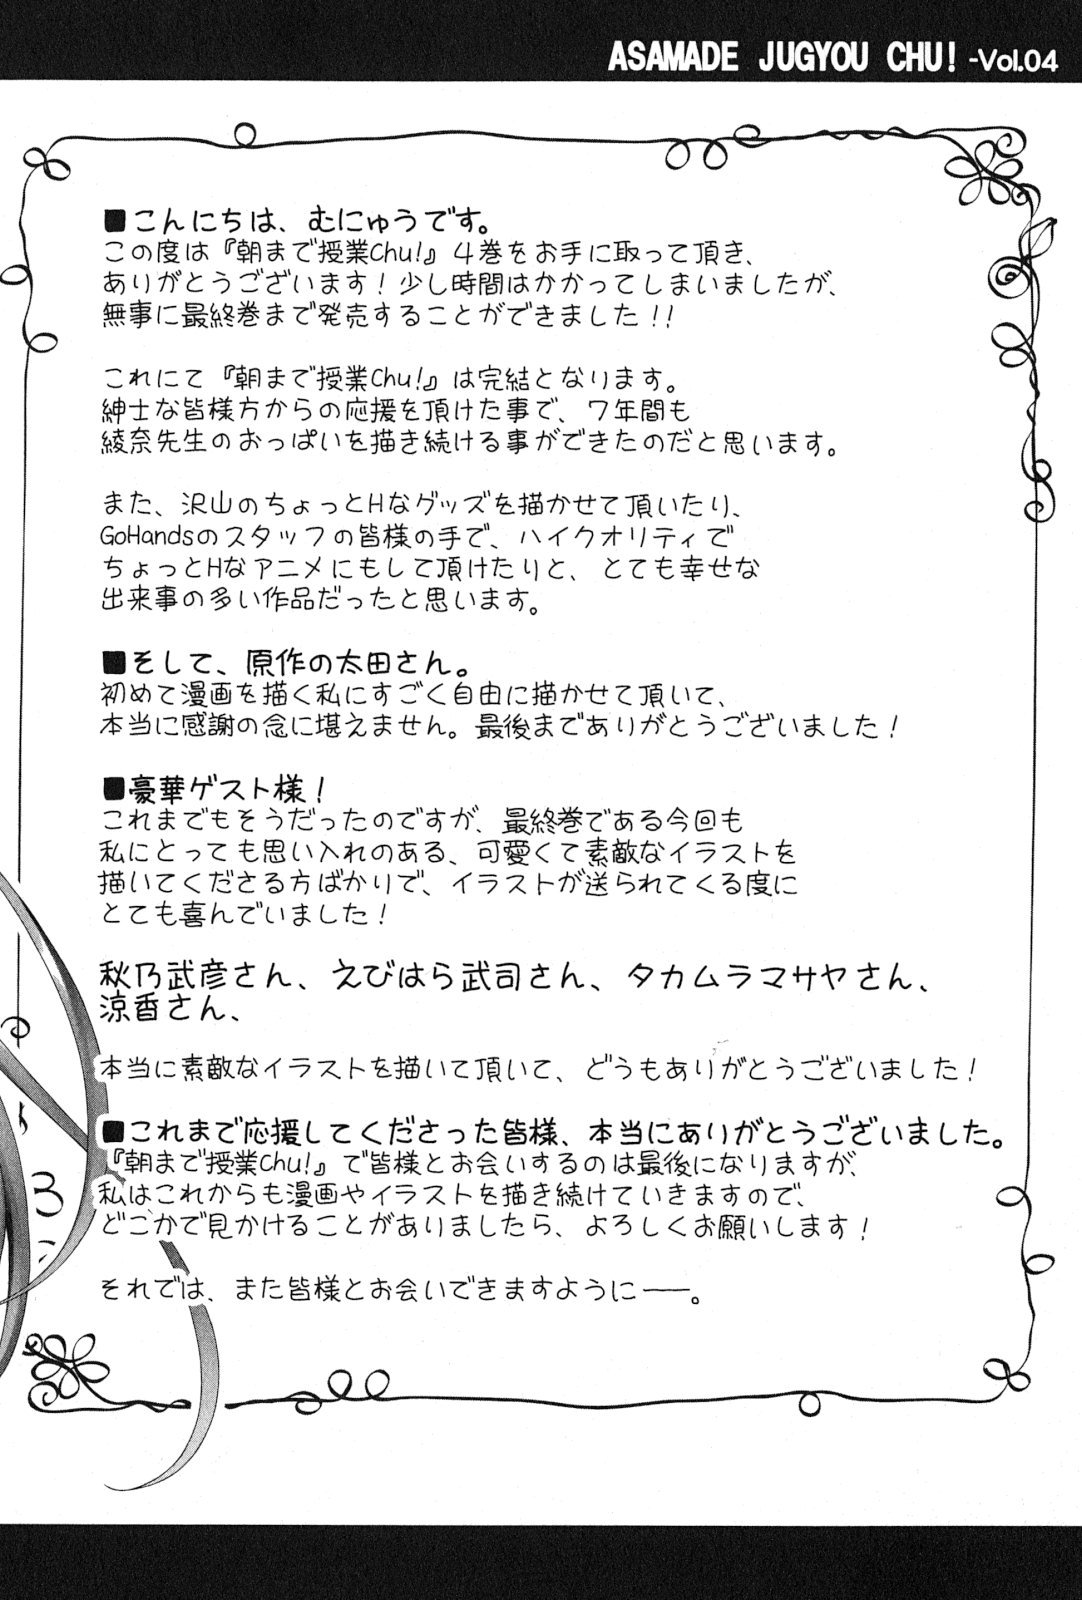 ASAMADE JUGYOU CHU! -Vol.04
■こんにちは、むにゅうです。
この度は『朝まで授業Chu!』４巻をお手に取って頂き、
ありがとうございます！少し時間はかかってしまいましたが、
無事に最終巻まで発売することができました！！
これにて『朝まで授業Chu!』は完結となります。
紳士な皆様方からの応援を頂けた事で、７年間も
綾奈先生のおっぱいを描き続ける事ができたのだと思います。
また、沢山のちょっとHなグッズを描かせて頂いたり、
GoHandsのスタッフの皆様の手で、ハイクオリティで
ちょっとHなアニメにもして頂けたりと、とても幸せな
出来事の多い作品だったと思います。
■そして、原作の太田さん。
初めて漫画を描く私にすごく自由に描かせて頂いて、
本当に感謝の念に堪えません。最後までありがとうございました！
■豪華ゲスト様！
これまでもそうだったのですが、最終巻である今回も
私にとっても思い入れのある、可愛くて素敵なイラストを
描いてくださる方ばかりで、イラストが送られてくる度に
とても喜んでいました！
秋乃武彦さん、えびはら武司さん、タカムラマサヤさん、
涼香さん、
本当に素敵なイラストを描いて頂いて、どうもありがとうございました！
■これまで応援してくださった皆様、本当にありがとうございました。
『朝まで授業Chu!』で皆様とお会いするのは最後になりますが、
私はこれからも漫画やイラストを描き続けていきますので、
どこかで見かけることがありましたら、よろしくお願いします！
それでは、また皆様とお会いできますように――。